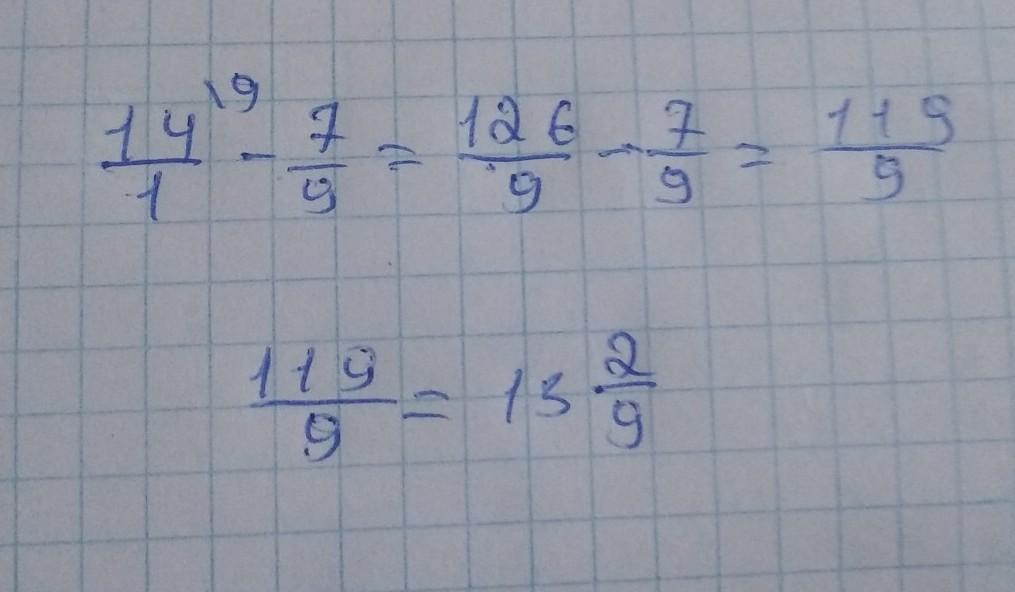 14/1 \9 - 7/9 = 126/9 - 7/9 = 119/9
119/9 = 13 2/9